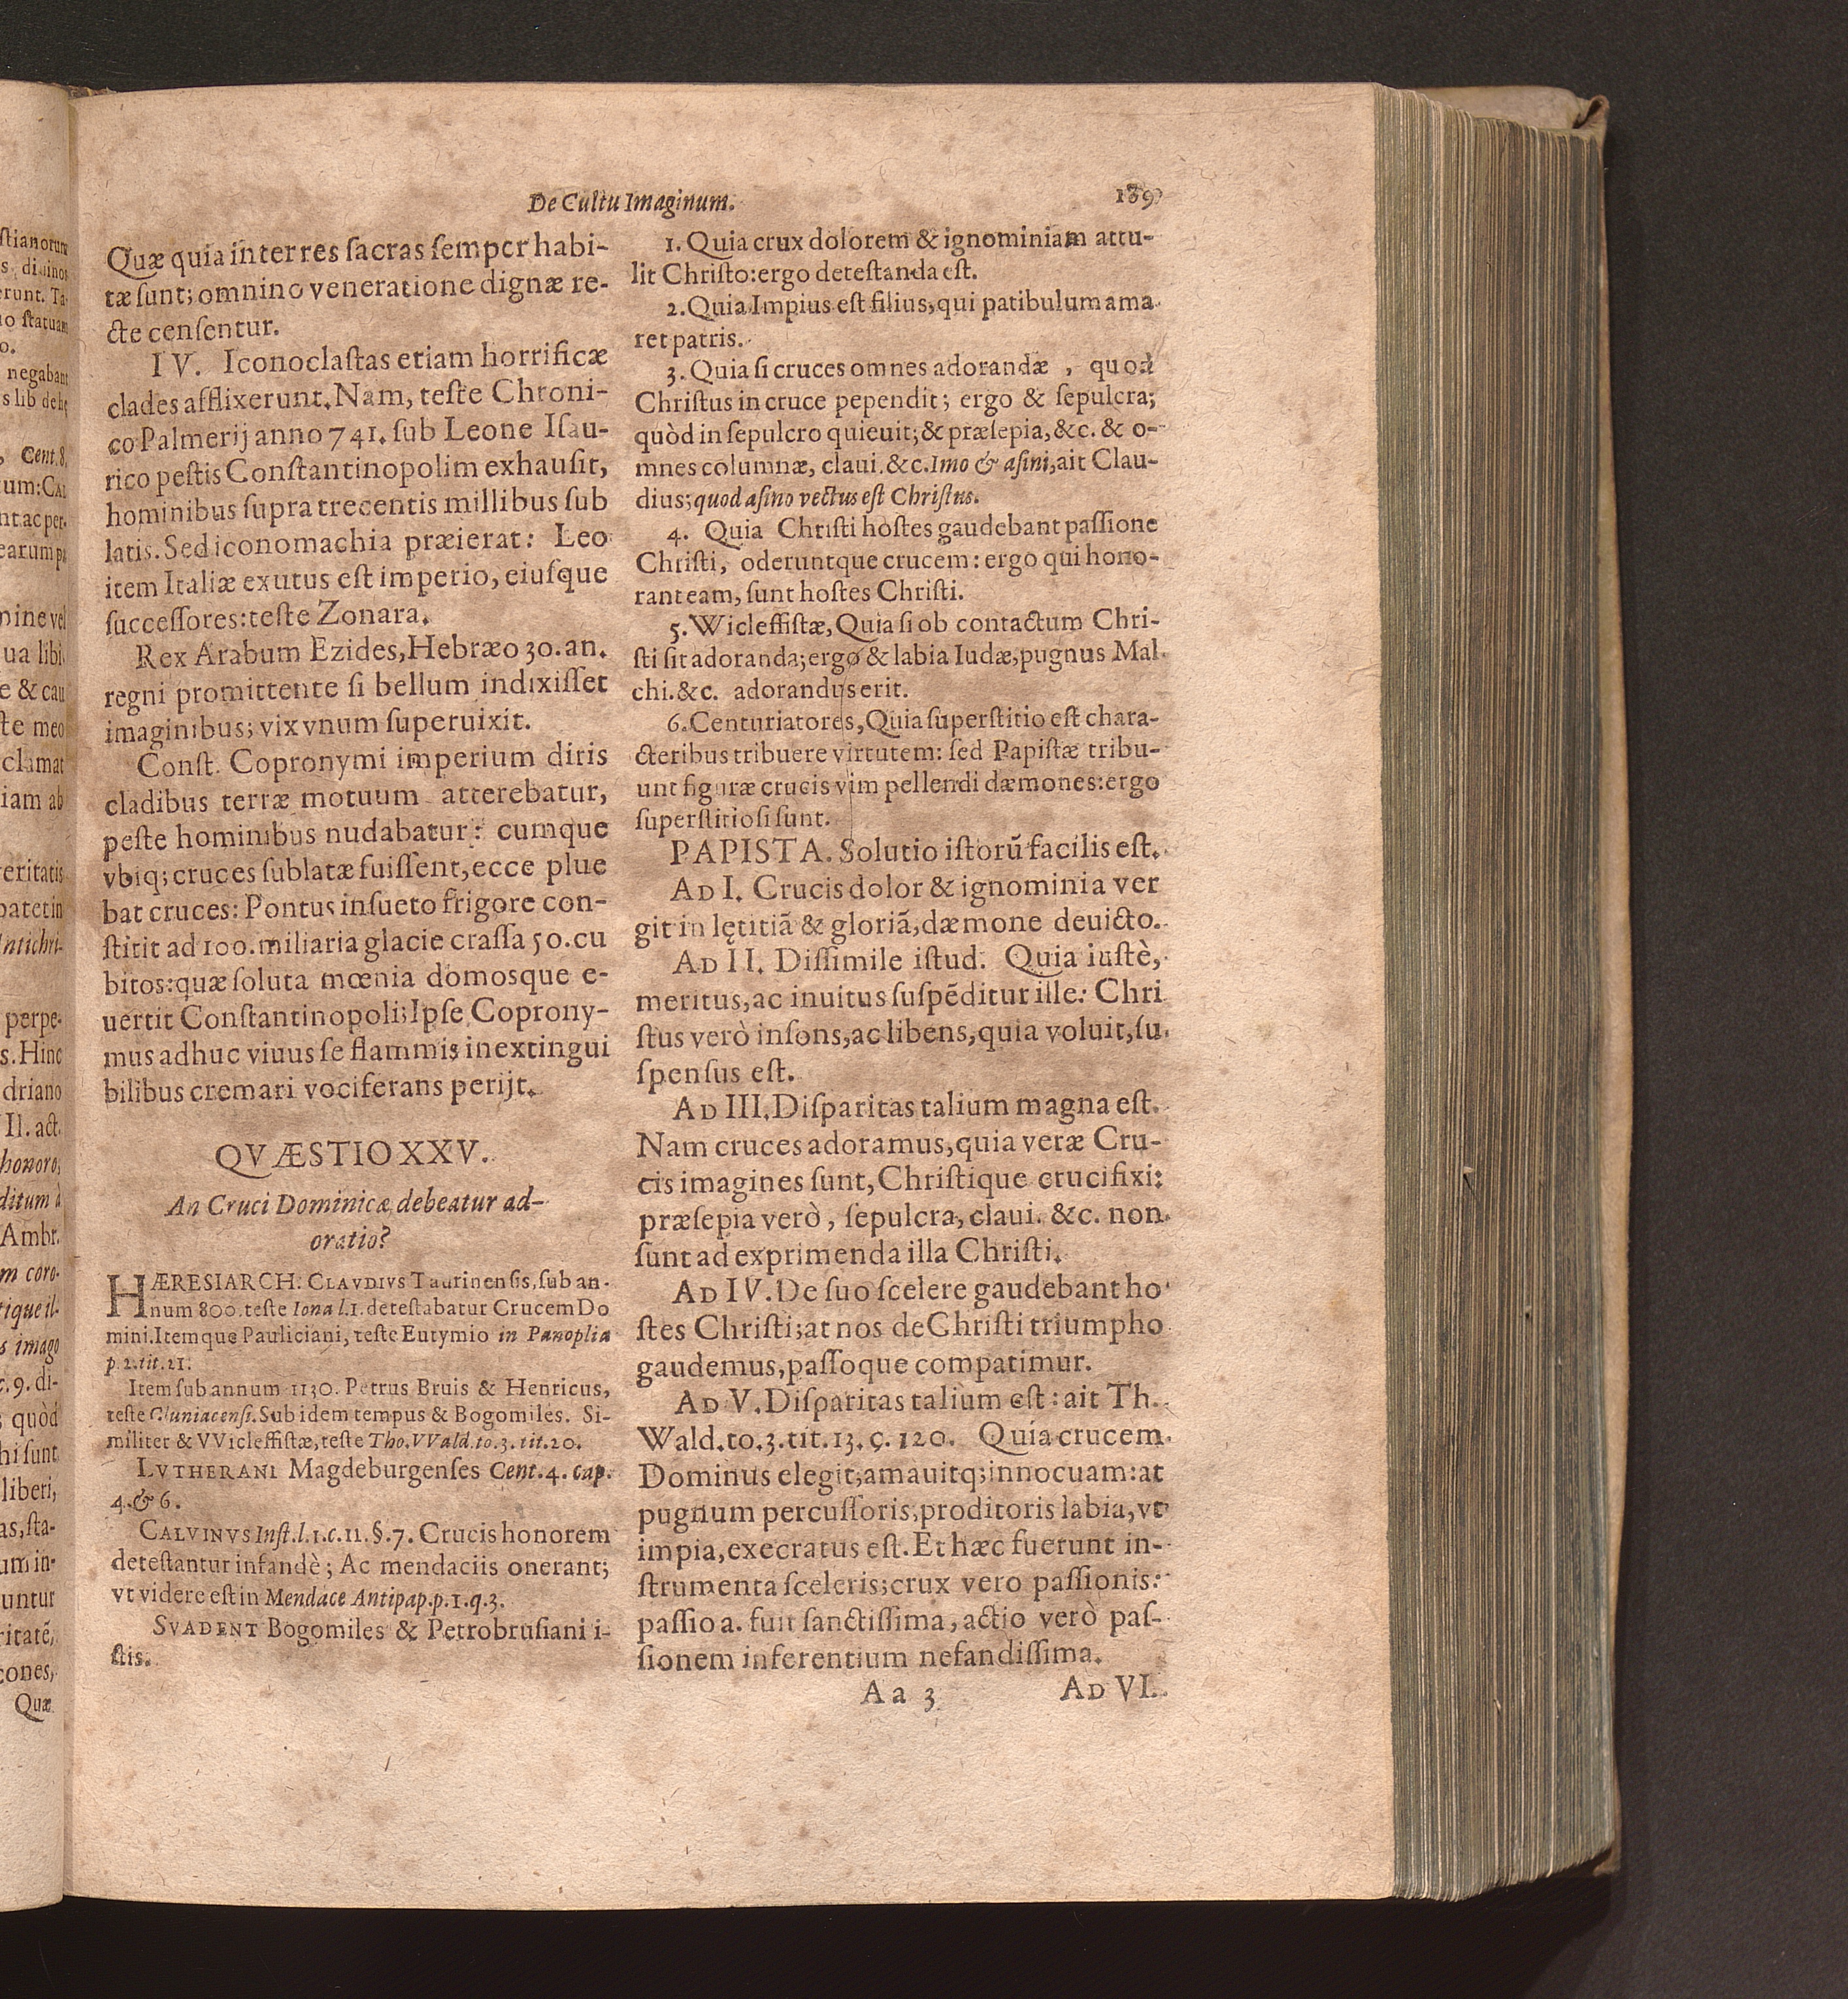 De Cultu Imaginum.
189
Quæ quia inter res ſacras ſemper habi-
tæ ſunt; omnino veneratione dignæ re-
cte cenſentur.
IV. Iconoclaſtas etiam horrificæ
clades afflixerunt. Nam, teſte Chroni-
co Palmerij anno 741. ſub Leone Iſau-
rico peſtis Conſtantinopolim exhauſit,
hominibus ſupra trecentis millibus ſub
latis. Sed iconomachia præierat: Leo
item Italiæ exutus eſt imperio, eiuſque
ſucceſſores: teſte Zonara.
Rex Arabum Ezides, Hebræo 30. an.
regni promittente ſi bellum indixiſſet
imaginibus; vix vnum ſuperuixit.
Conſt. Copronymi imperium diris
cladibus terræ motuum atterebatur,
peſte hominibus nudabatur: cumque
vbiq; cruces ſublatæ fuiſſent, ecce plue
bat cruces: Pontus inſueto frigore con-
ſtitit ad 100. miliaria glacie craſſa 50. cu
bitos: quæ ſoluta mœnia domosque e-
uertit Conſtantinopoli; Ipſe Coprony-
mus adhuc viuus ſe flammis inextingui
bilibus cremari vociferans perijt.
QVÆSTIO XXV.
An Cruci Dominicæ debeatur ad-
oratio?
HÆRESIARCH. CLAVDIVS Taurinenſis, ſub an-
num 800. teſte Iona l.1. deteſtabatur Crucem Do
mini. Itemque Pauliciani, teſte Eutymio in Panoplia
p. 2. tit. 21.
Item ſub annum 1130. Petrus Bruis & Henricus,
teſte Cluniacenſi. Sub idem tempus & Bogomiles. Si-
militer & VVicleffiſtæ, teſte Tho. VVald. to. 3. tit. 20.
LVTHERANI Magdeburgenſes Cent. 4. cap.
4. & 6.
CALVINVS Inſt. l. 1. c. 11. §. 7. Crucis honorem
deteſtantur infandè; Ac mendaciis onerant;
vt videre eſt in Mendace Antipap. p. 1. q. 3.
SVADENT Bogomiles & Petrobruſiani i-
ſtis.
1. Quia crux dolorem & ignominiam attu-
lit Chriſto: ergo deteſtanda eſt.
2. Quia Impius eſt filius, qui patibulum ama
ret patris.
3. Quia ſi cruces omnes adorandæ, quod
Chriſtus in cruce pependit; ergo & ſepulcra;
quòd in ſepulcro quieuit; & præſepia, &c. & o-
mnes columnæ, claui. &c. Imo & aſini, ait Clau-
dius; quod aſino vectus eſt Chriſtus.
4. Quia Chriſti hoſtes gaudebant paſſione
Chriſti, oderuntque crucem: ergo qui hono-
rant eam, ſunt hoſtes Chriſti.
5. Wicleffiſtæ, Quia ſi ob contactum Chri-
ſti ſit adoranda; ergo & labia Iudæ, pugnus Mal
chi. &c. adorandus erit.
6. Centuriatores, Quia ſuperſtitio eſt chara-
cteribus tribuere virtutem: ſed Papiſtæ tribu-
unt figuræ crucis vim pellendi dæmones: ergo
ſuperſtitioſi ſunt.
PAPISTA. Solutio iſtorũ facilis eſt.
AD I. Crucis dolor & ignominia ver
git in lętitiã & gloriã, dæmone deuicto.
AD II. Diſſimile iſtud. Quia iuſtè,
meritus, ac inuitus ſuſpẽditur ille: Chri
ſtus verò inſons, ac libens, quia voluit, ſu
ſpenſus eſt.
AD III. Diſparitas talium magna eſt.
Nam cruces adoramus, quia veræ Cru-
cis imagines ſunt, Chriſtique crucifixi:
præſepia verò, ſepulcra, claui. &c. non
ſunt ad exprimenda illa Chriſti.
AD IV. De ſuo ſcelere gaudebant ho
ſtes Chriſti; at nos de Chriſti triumpho
gaudemus, paſſoque compatimur.
AD V. Diſparitas talium eſt: ait Th.
Wald. to. 3. tit. 13. c. 120. Quia crucem
Dominus elegit; amauitq; innocuam: at
pugnum percuſſoris, proditoris labia, vt
impia, execratus eſt. Et hæc fuerunt in-
ſtrumenta ſceleris; crux vero paſſionis:
paſſio a. fuit ſanctiſſima, actio verò paſ-
ſionem inferentium nefandiſſima.
Aa 3
AD VI.